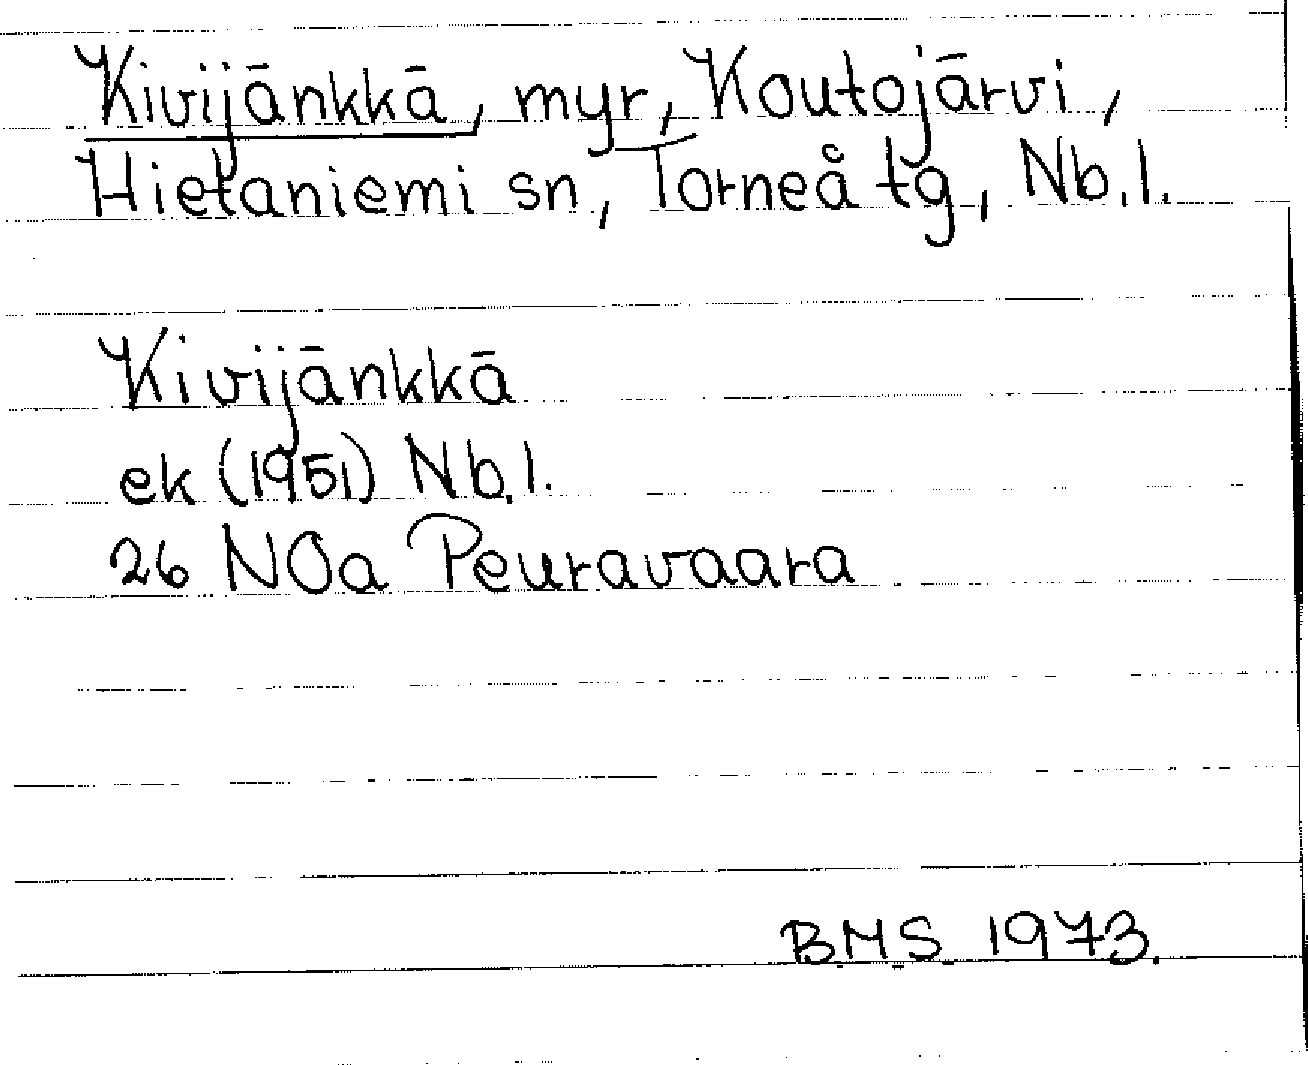 Kivijänkkä, myr, Koutojärvi,
Hietaniemi sn, Torneå tg, Nb. l.
Kivijänkkä
ek (1951) Nb. l.
26 NOa Peuravaara
BMS 1973.